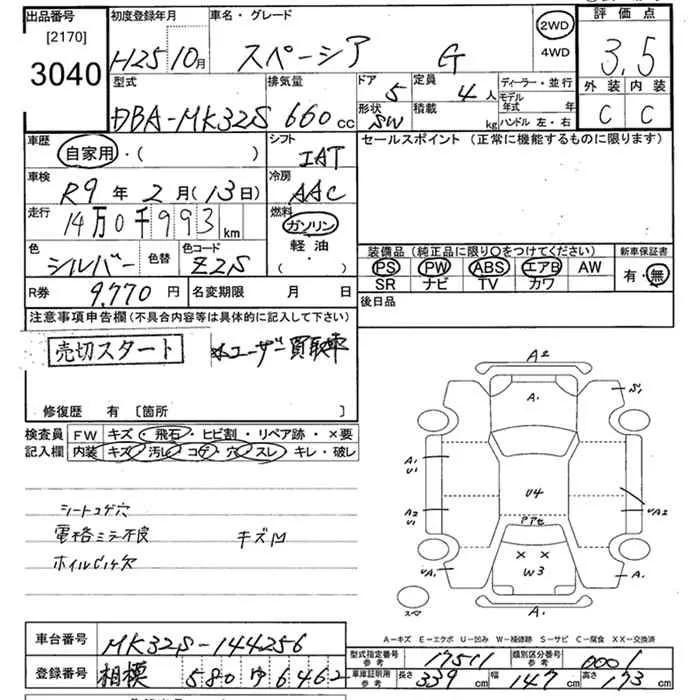 出品番号
[2170]
3040
初度登録年月
H25 10月
車名・グレード
スペーシア G
2WD
4WD
評価点
3.5
外装 内装
C C
型式
DBA-MK32S
排気量
660 cc
ドア 5
形状 SW
定員 4人
積載 kg
ディーラー・並行
モデル年式 年
ハンドル 左・右
車歴
自家用・( )
シフト
IAT
セールスポイント (正常に機能するものに限ります)
車検
R9年2月(13日)
冷房
AAC
走行
14万0千993km
燃料
ガソリン
軽油
( ・ )
色
シルバー
色替
色コード
Z2S
装備品 (純正品に限り〇をつけてください)
PS PW ABS エアB AW
SR ナビ TV カワ
新車保証書
有・無
R券 9,770円
名変期限 月 日
後日品
注意事項申告欄(不具合内容等は具体的に記入して下さい)
売切スタート
※ユーザー買取車
修復歴 有 〔箇所 〕
検査員記入欄
FW キズ・飛石・ヒビ割・リペア跡・×要
内装 キズ・汚レ・コゲ・穴・スレ・キレ・破レ
シートコゲ穴
電格ミラー不良 キズ凹
A2
A.
S1
A1
U1
U4
A2
U1
UA2
UA1
W3
A.
A.
スペア
A-キズ E-エクボ U-凹み W-補修跡 S-サビ C-腐食 XX-交換済
車台番号 MK32S-144256
登録番号 相模 580 ゆ 6462
型式指定番号 参考 17511
類別区分番号 参考 0001
車庫証明用 参考 長さ 339cm 幅 147cm 高さ 173cm